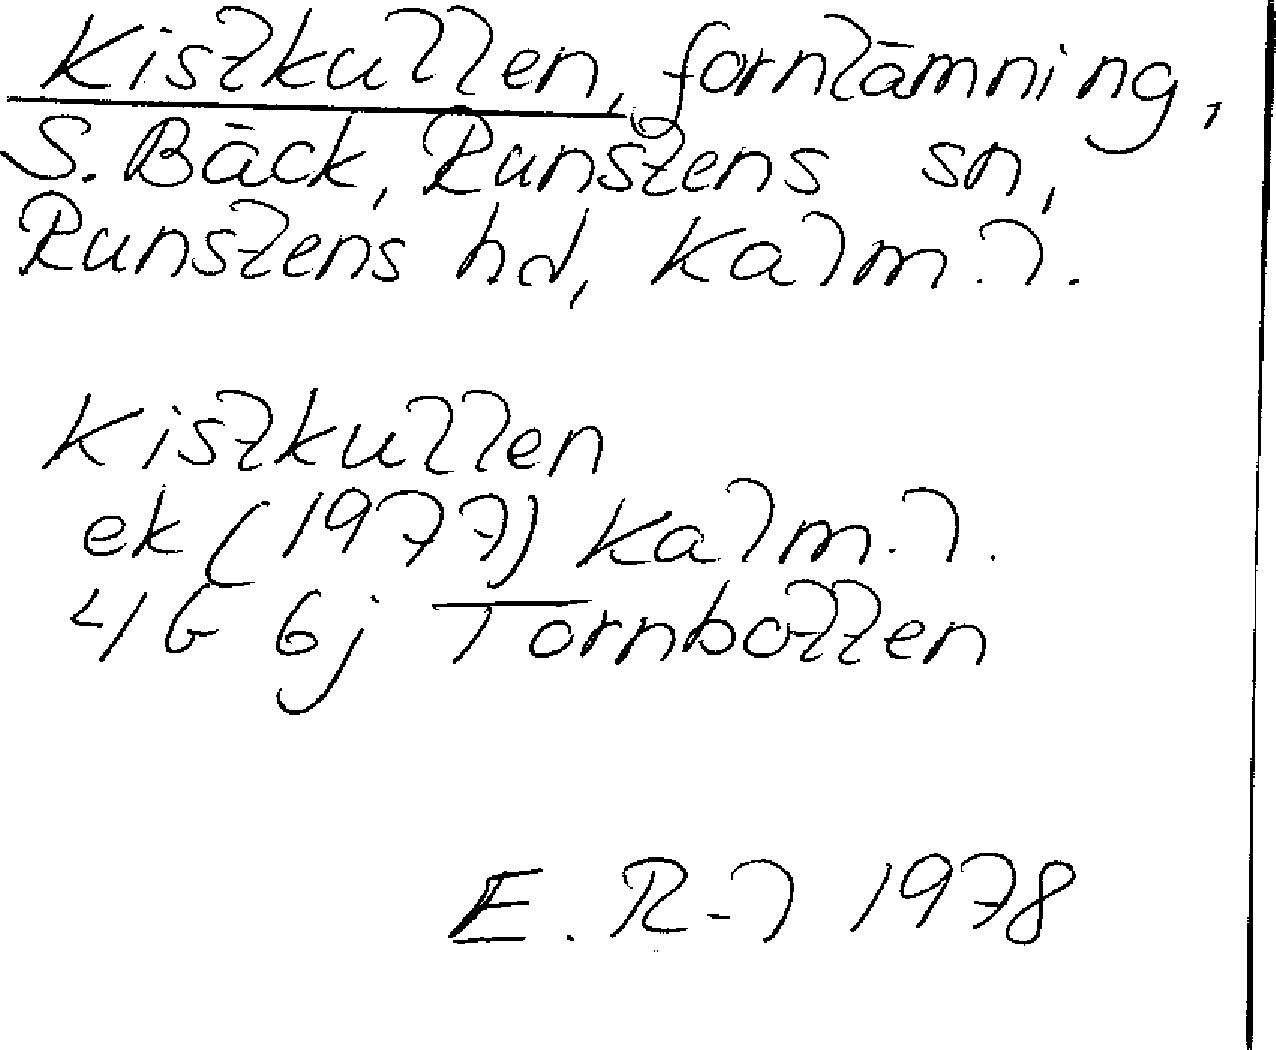 Kislkullen, fornlämning,
S. Bäck, Runstens sn,
Runstens hd, Kalm. l.
Kislkullen
ek (1977) Kalm. l.
4G 6j Tornbotten
E. R-l 1978